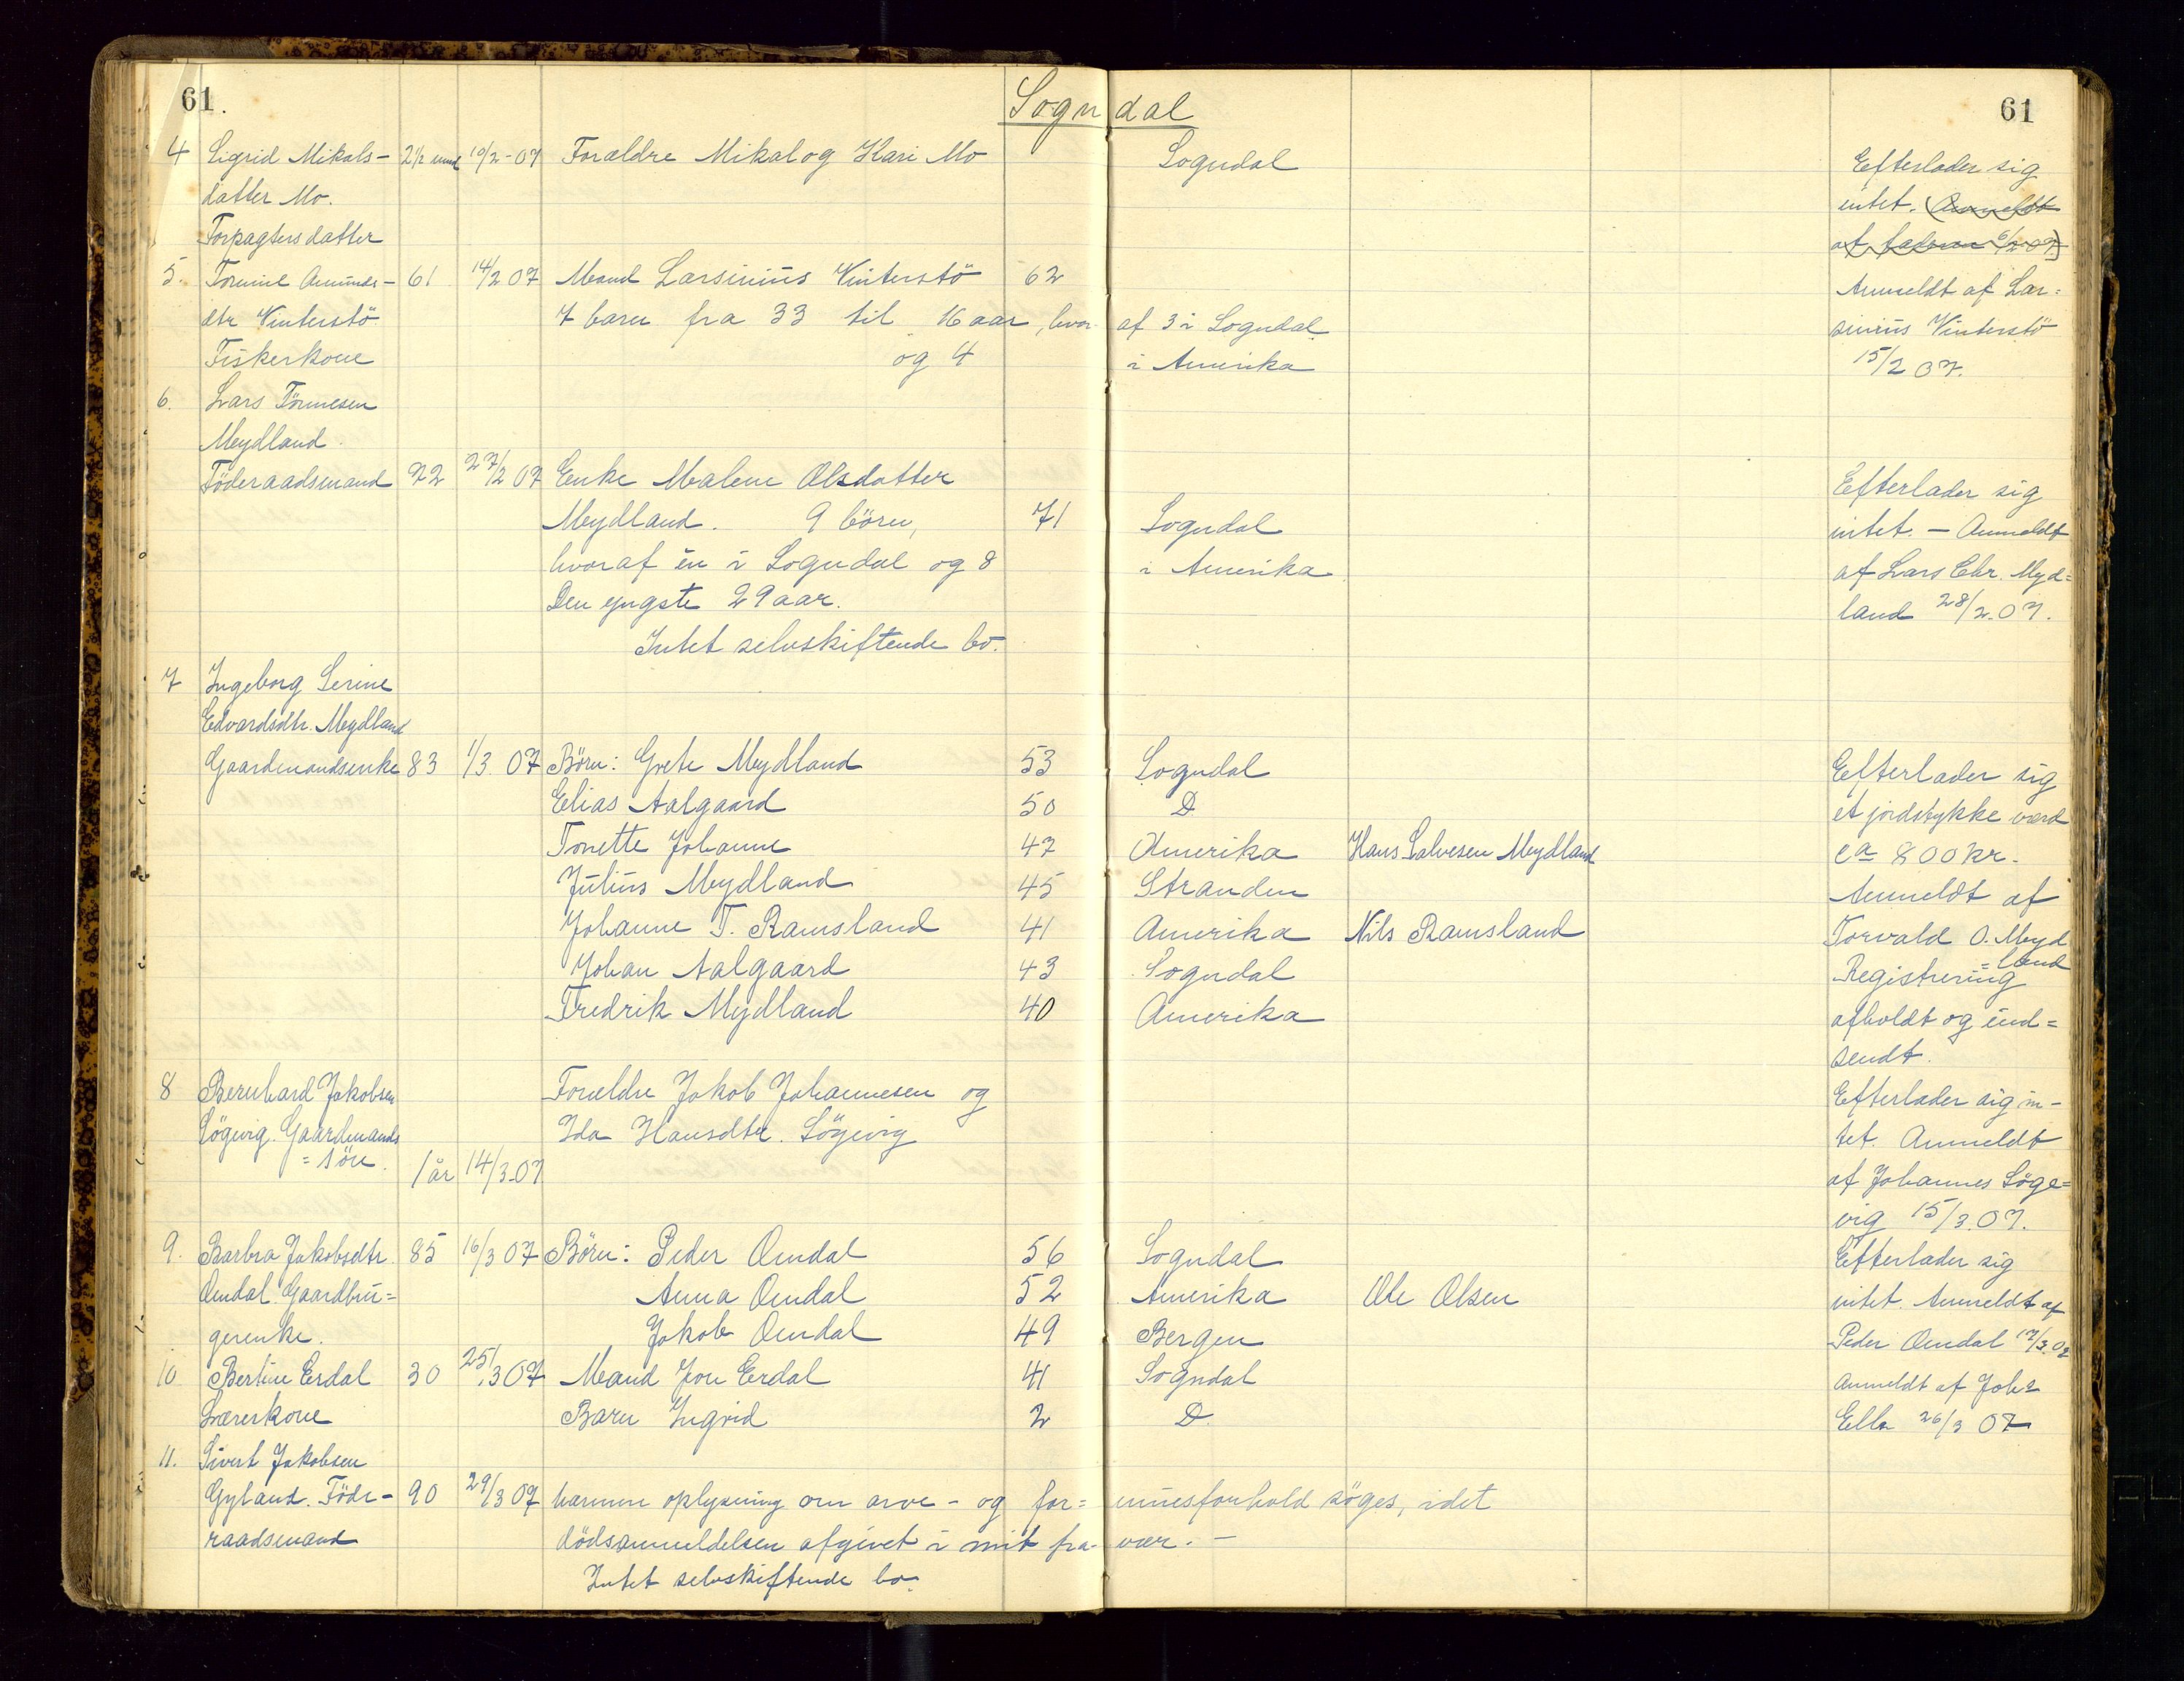 61.
Sogndal
61
4 Sigrid Mikals- 2½ mnd 10/2-07 Forældre Mikal og Kari Mo Sogndal Efterlader sig
datter Mo. intet. (Anmeldt
Forpagters datter af faderen 6/2 07)
5. Tomine Amunds- 61 14/2 07 Mand Larsinius Vinterstö 62 Anmeldt af Lar=
dtr Vinterstö 7 barn fra 33 til 16 aar, hvor af 3 i Sogndal sinius Vinterstö
Fiskerkone og 4 i Amerika 15/2 07.
6. Lars Tönnesen
Meydland.
Föderaadsmand 72 27/2 07 Enke Malene Olsdatter Efterlader sig
Meydland. 9 börn, 71 Sogndal intet. - Anmeldt
hvoraf én i Sogndal og 8 i Amerika af Lars Chr. Myd=
Den yngste 29 aar. land 28/2.07.
Intet selvskiftende bo.
7 Ingeborg Serine
Edvardsdtr. Meydland
Gaardmandsenke 83 1/3 07 Börn: Grete Meydland 53 Sogndal Efterlader sig
Elias Aalgaard 50 D. et jordstykke værd
Tonette Johanne 47 Amerika Hans Salvesen Meydland ca 800 kr.
Julius Meydland 45 Stranden Anmeldt af
Johanne T. Ramsland 41 Amerika Nils Ramsland Torvald O. Myd
Johan Aalgaard 43 Sogndal =land
Registrering
Fredrik Mydland 40 Amerika afholdt og ind=
sendt.
8 Bernhard Jakobsen Forældre Jakob Johannesen og Efterlader sig in-
Sögevig. Gaardmands Ida Hansdtr. Sögevig tet. Anmeldt
=sön. 1 år 14/3.07 af Johannes Söge=
vig 15/3.07.
9. Barbra Jakobsdtr. 85 16/3 07 Börn: Peder Omdal 56 Sogndal Efterlader sig
Omdal. Gaardbru= Anna Omdal 52 Amerika Ole Olsen intet. Anmeldt af
gerenke. Jakob Omdal 49 Bergen Peder Omdal 17/3.07
10 Bertine Erdal 30 25/3 07 Mand Jon Erdal 41 Sogndal Anmeldt af Johs
Lærerkone Barn Ingrid 2 D. Elle 26/3 07
11. Sivert Jakobsen
Gyland. Föde- 90 29/3 07 nærmere oplysning om arve- og for= muesforhold söges, idet
raadsmand dödsanmeldelsen afgivet i mit fra- vær. -
Intet selvskiftende bo.